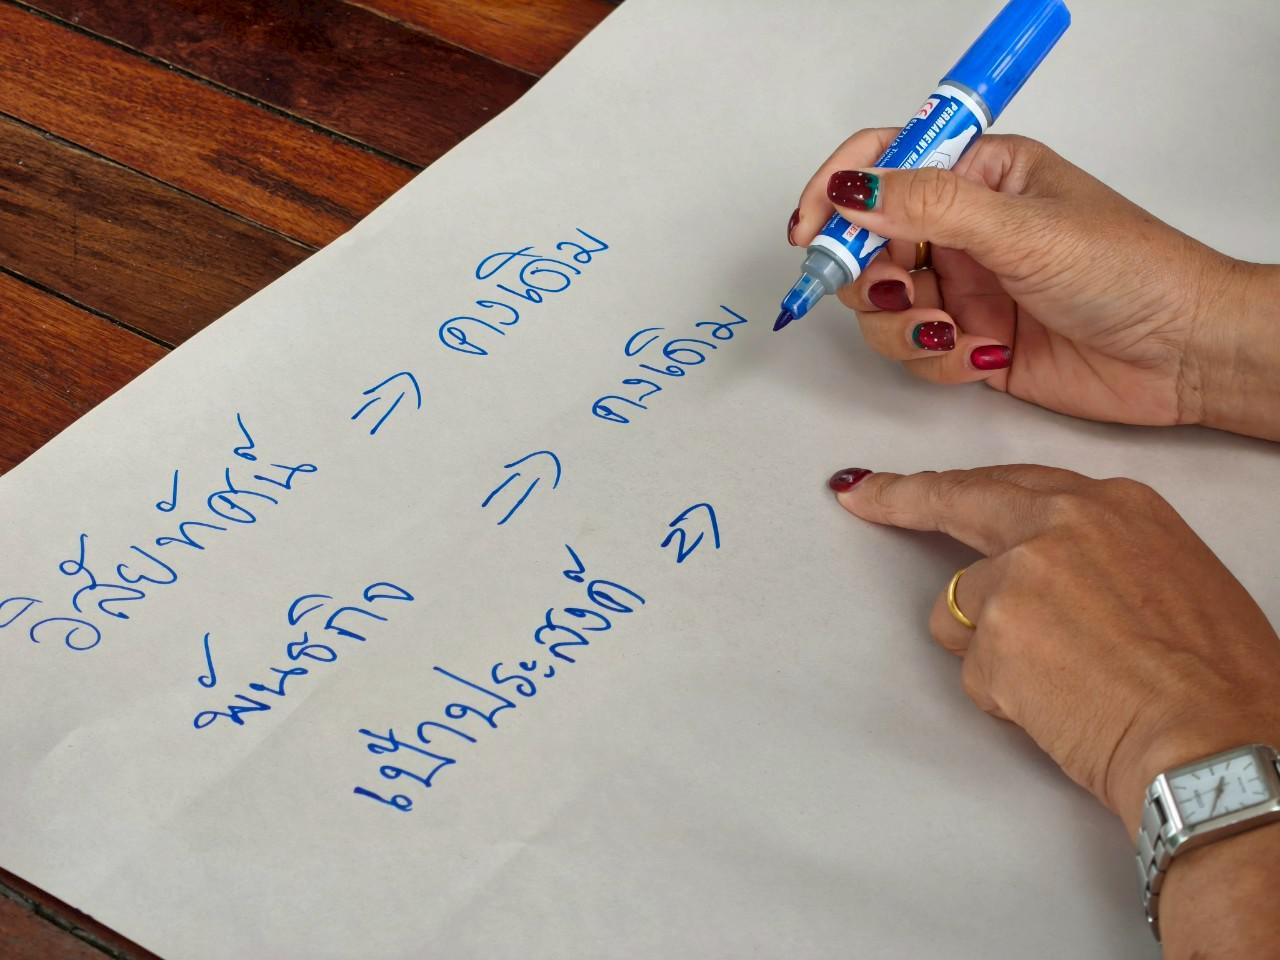 วิสัยทัศน์ ⇒ คงเดิม
พันธกิจ ⇒ คงเดิม
เป้าประสงค์ ⇒
PERMANENT MAR